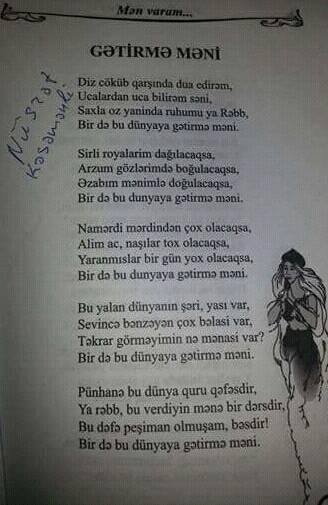 Mən varam...
GƏTİRMƏ MƏNİ
Nüsrət
Kəsəmənli
Diz çöküb qarşında dua edirəm,
Ucalardan uca bilirəm səni,
Saxla oz yaninda ruhumu ya Rəbb,
Bir də bu dünyaya gətirmə məni.
Sirli royalarim dağılacaqsa,
Arzum gözlərimdə boğulacaqsa,
Əzabım mənimlə doğulacaqsa,
Bir də bu dunyaya gətirmə məni.
Namərdi mərdindən çox olacaqsa,
Alim ac, naşılar tox olacaqsa,
Yaranmıslar bir gün yox olacaqsa,
Bir də bu dunyaya gətirmə məni.
Bu yalan dünyanın şəri, yası var,
Sevincə bənzəyən çox bəlasi var,
Təkrar görməyimin nə mənasi var?
Bir də bu dünyaya gətirmə məni.
Pünhanə bu dünya quru qəfəsdir,
Ya rəbb, bu verdiyin mənə bir dərsdir,
Bu dəfə peşiman olmuşam, bəsdir!
Bir də bu dünyaya gətirmə məni.